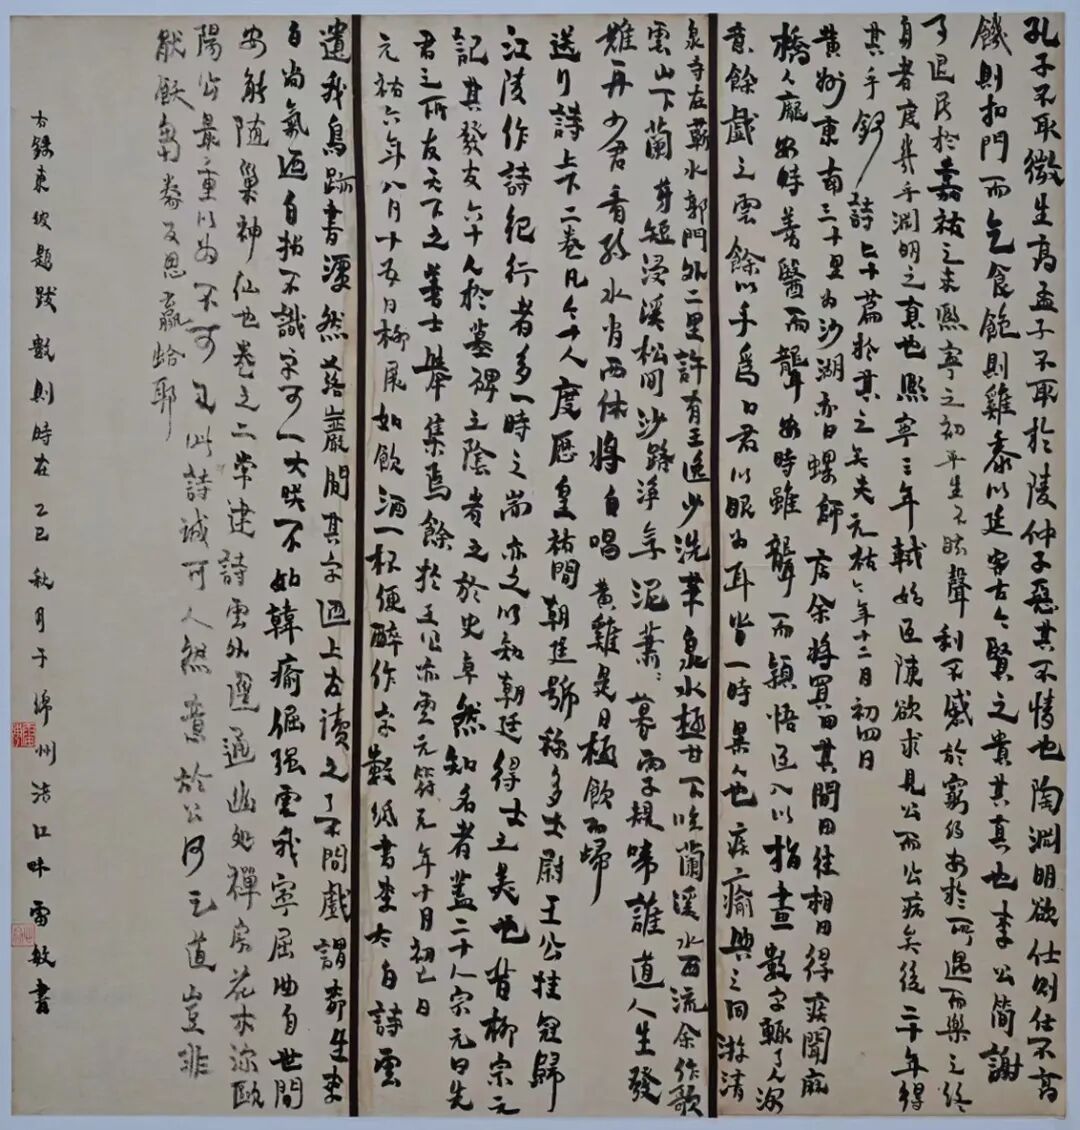 孔子不取微生高孟子不取於陵仲子惡其不情也陶淵明欲仕則仕不高
饑則扣門而乞食飽則雞黍以延客古今賢之貴其真也李公簡謝
了退居於嘉祐之末熙寧之初平生不眩聲利不慼於窮約安於所遇而樂之終
身者庶幾乎淵明之真也熙寧三年軾始過陳欲求見公而公病矣後二十年得
其手錄詩七十篇於其之矣夫元祐六年十二月初四日
黃州東南三十里為沙湖亦曰螺師店余將買田其間因往相田得疾聞麻
橋人龐安時善醫而聾安時雖聾而穎悟過人以指畫數字輒了人深
意餘戲之雲餘以手為口君以眼為耳皆一時異人也疾癒與之同遊清
泉寺在蘄水郭門外二里許有王逸少洗筆泉水極甘下臨蘭溪水西流余作歌
雲山下蘭芽短浸溪松間沙路淨無泥蕭蕭暮雨子規啼誰道人生
難再少君看流水尚西休將白唱黃雞是日極飲而歸
送行詩上下二卷凡六十人慶曆皇祐間朝廷號稱多士尉王公挂冠歸
江陵作詩紀行者多一時之尚亦足以知朝廷得士之美也昔柳宗元
記其發友六十人於墓碑之陰考之於史卓然知名者蓋二十人宗元曰先
君之所友天下之善士舉集焉餘於王公亦雲元符元年十月初七日
元祐六年八月十五日柳展如飲酒一杯便醉作字數紙書李太白詩雲
遺我鳥跡書飄然落巖間其字迺上古讀之了不閒戲謂柳生李
白尚氣迺自招不識字可一大笑不如韓癒倔強雲我寧屈曲自世間
安能隨巢神仙也卷之二常建詩雲曲徑通幽處禪房花木深歐
陽公最重以為不可及此詩誠可人然意於公何足道豈非
厭飫芻豢反思螺蛤耶
右錄東坡題跋數則時在乙巳秋月於綿州涪江畔雷敏書